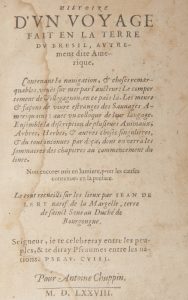 HISTOIRE
D'VN VOYAGE
FAIT EN LA TERRE
DV BRESIL, AVTRE-
ment dite Ame-
rique.
Contenant la nauigation, & choses remar-
quables, veuës sur mer par l'aucteur: Le compor-
tement de Villegagnon, en ce païs là. Les meurs
& façons de viure estranges des Sauuages A-
meriquains: auec vn colloque de leur langage.
Ensemble la description de plusieurs Animaux,
Arbres, Herbes, & autres choses singulieres,
& du tout inconues par deça, dont on verra les
sommaires des chapitres au commencement du
liure.
Non encores mis en lumiere, pour les causes
contenues en la preface.
Le tout recueilli sur les lieux par IEAN DE
LERY natif de la Margelle, terre
de sainct Sene au Duché de
Bourgongne.
Seigneur, ie te celebreray entre les peu-
ples, & te diray Pseaumes entre les na-
tions. PSEAV. CVIII.
Pour Antoine Chuppin.
M. D. LXXVIII.